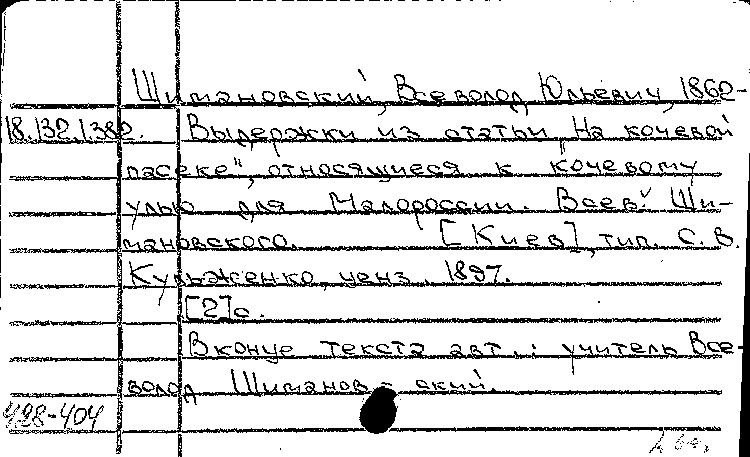 Шимановский, Всеволод Юльевич, 1862-
18.132.1.382. Выдержки из статьи „На кочевой
пасеке", относящиеся к кочевому
улью для Малороссии. Всев. Ши-
мановского. [Киев], тип. С.В.
Кульженко, ценз. 1897.
[2]с.
В конце текста авт.: учитель Все-
волод Шиманов-ский.
428-404